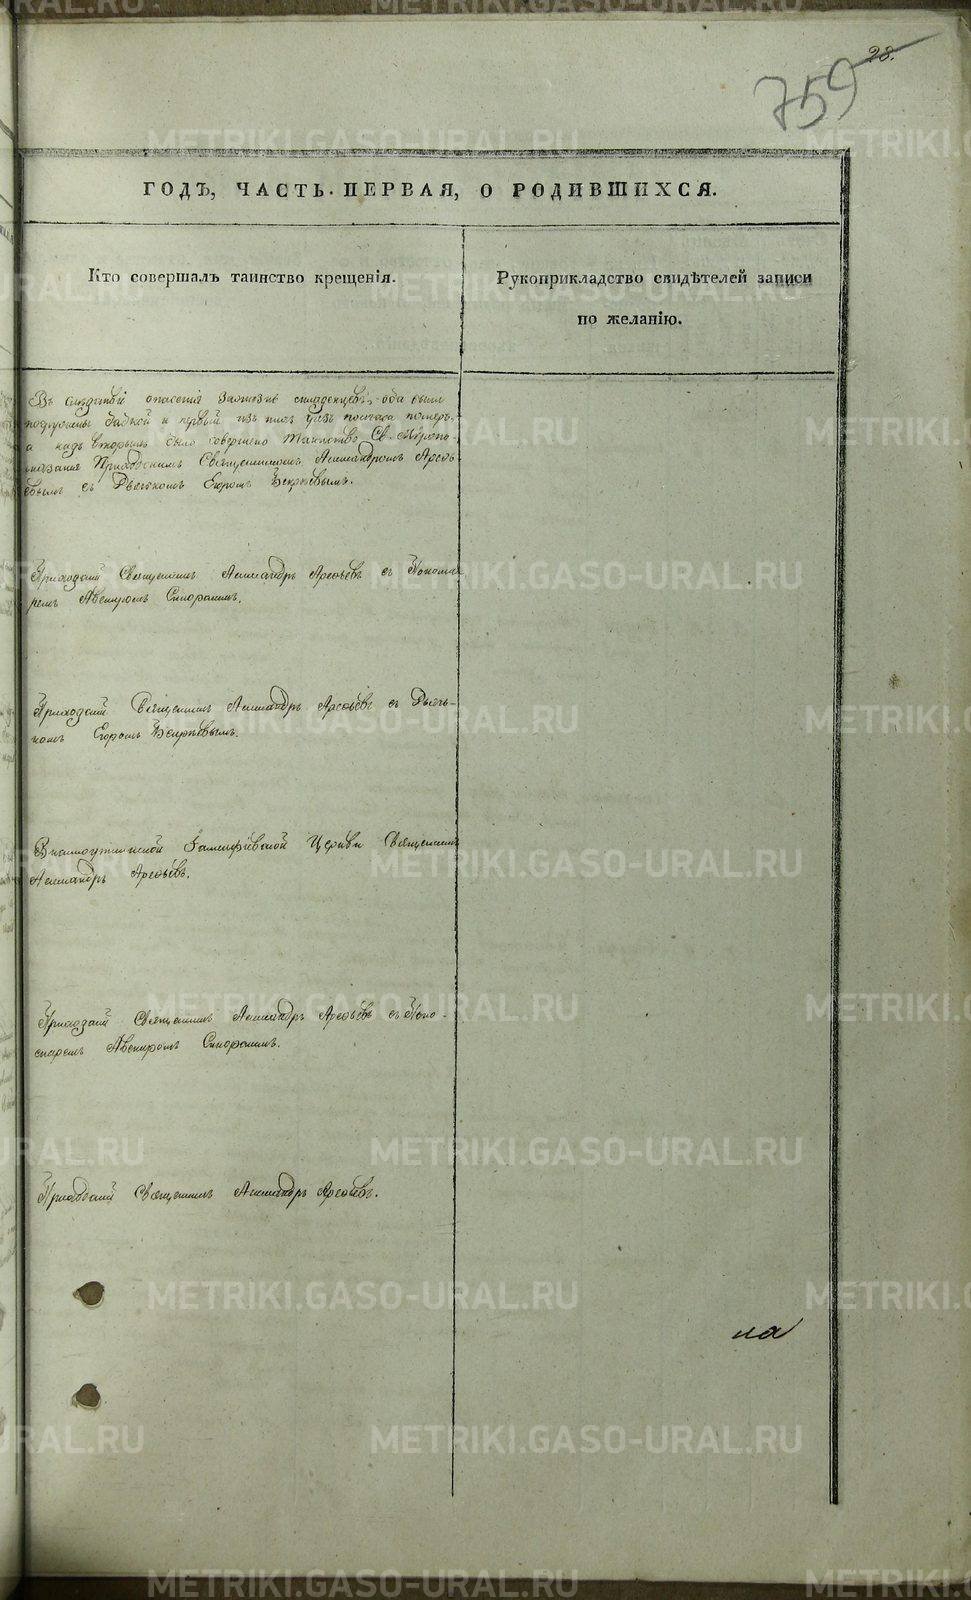 28.
759
ГОДЪ, ЧАСТЬ ПЕРВАЯ, О РОДИВШИХСЯ.
Кто совершалъ таинство крещенія.
Рукоприкладство свидѣтелей записи
по желанію.
Въ слѣдствіе опасенія за жизнь младенцевъ, оба были
погружены бабкой и первый изъ нихъ померъ,
а надъ вторымъ было совершено Таинство Св. Мѵропо-
мазанія Приходскимъ Священникомъ Александромъ Арефь-
евымъ съ Дьячкомъ Егоромъ
Приходскій Священникъ Александръ Арефьевъ съ Понома-
ремъ Авениромъ
Приходскій Священникъ Александръ Арефьевъ съ Дьяч-
комъ Егоромъ
Церкви Священникъ
Александръ Арефьевъ.
Приходскій Священникъ Александръ Арефьевъ съ Поно-
маремъ Авениромъ
Приходскій Священникъ Александръ Арефьевъ.
METRIKI.GASO-URAL.RU